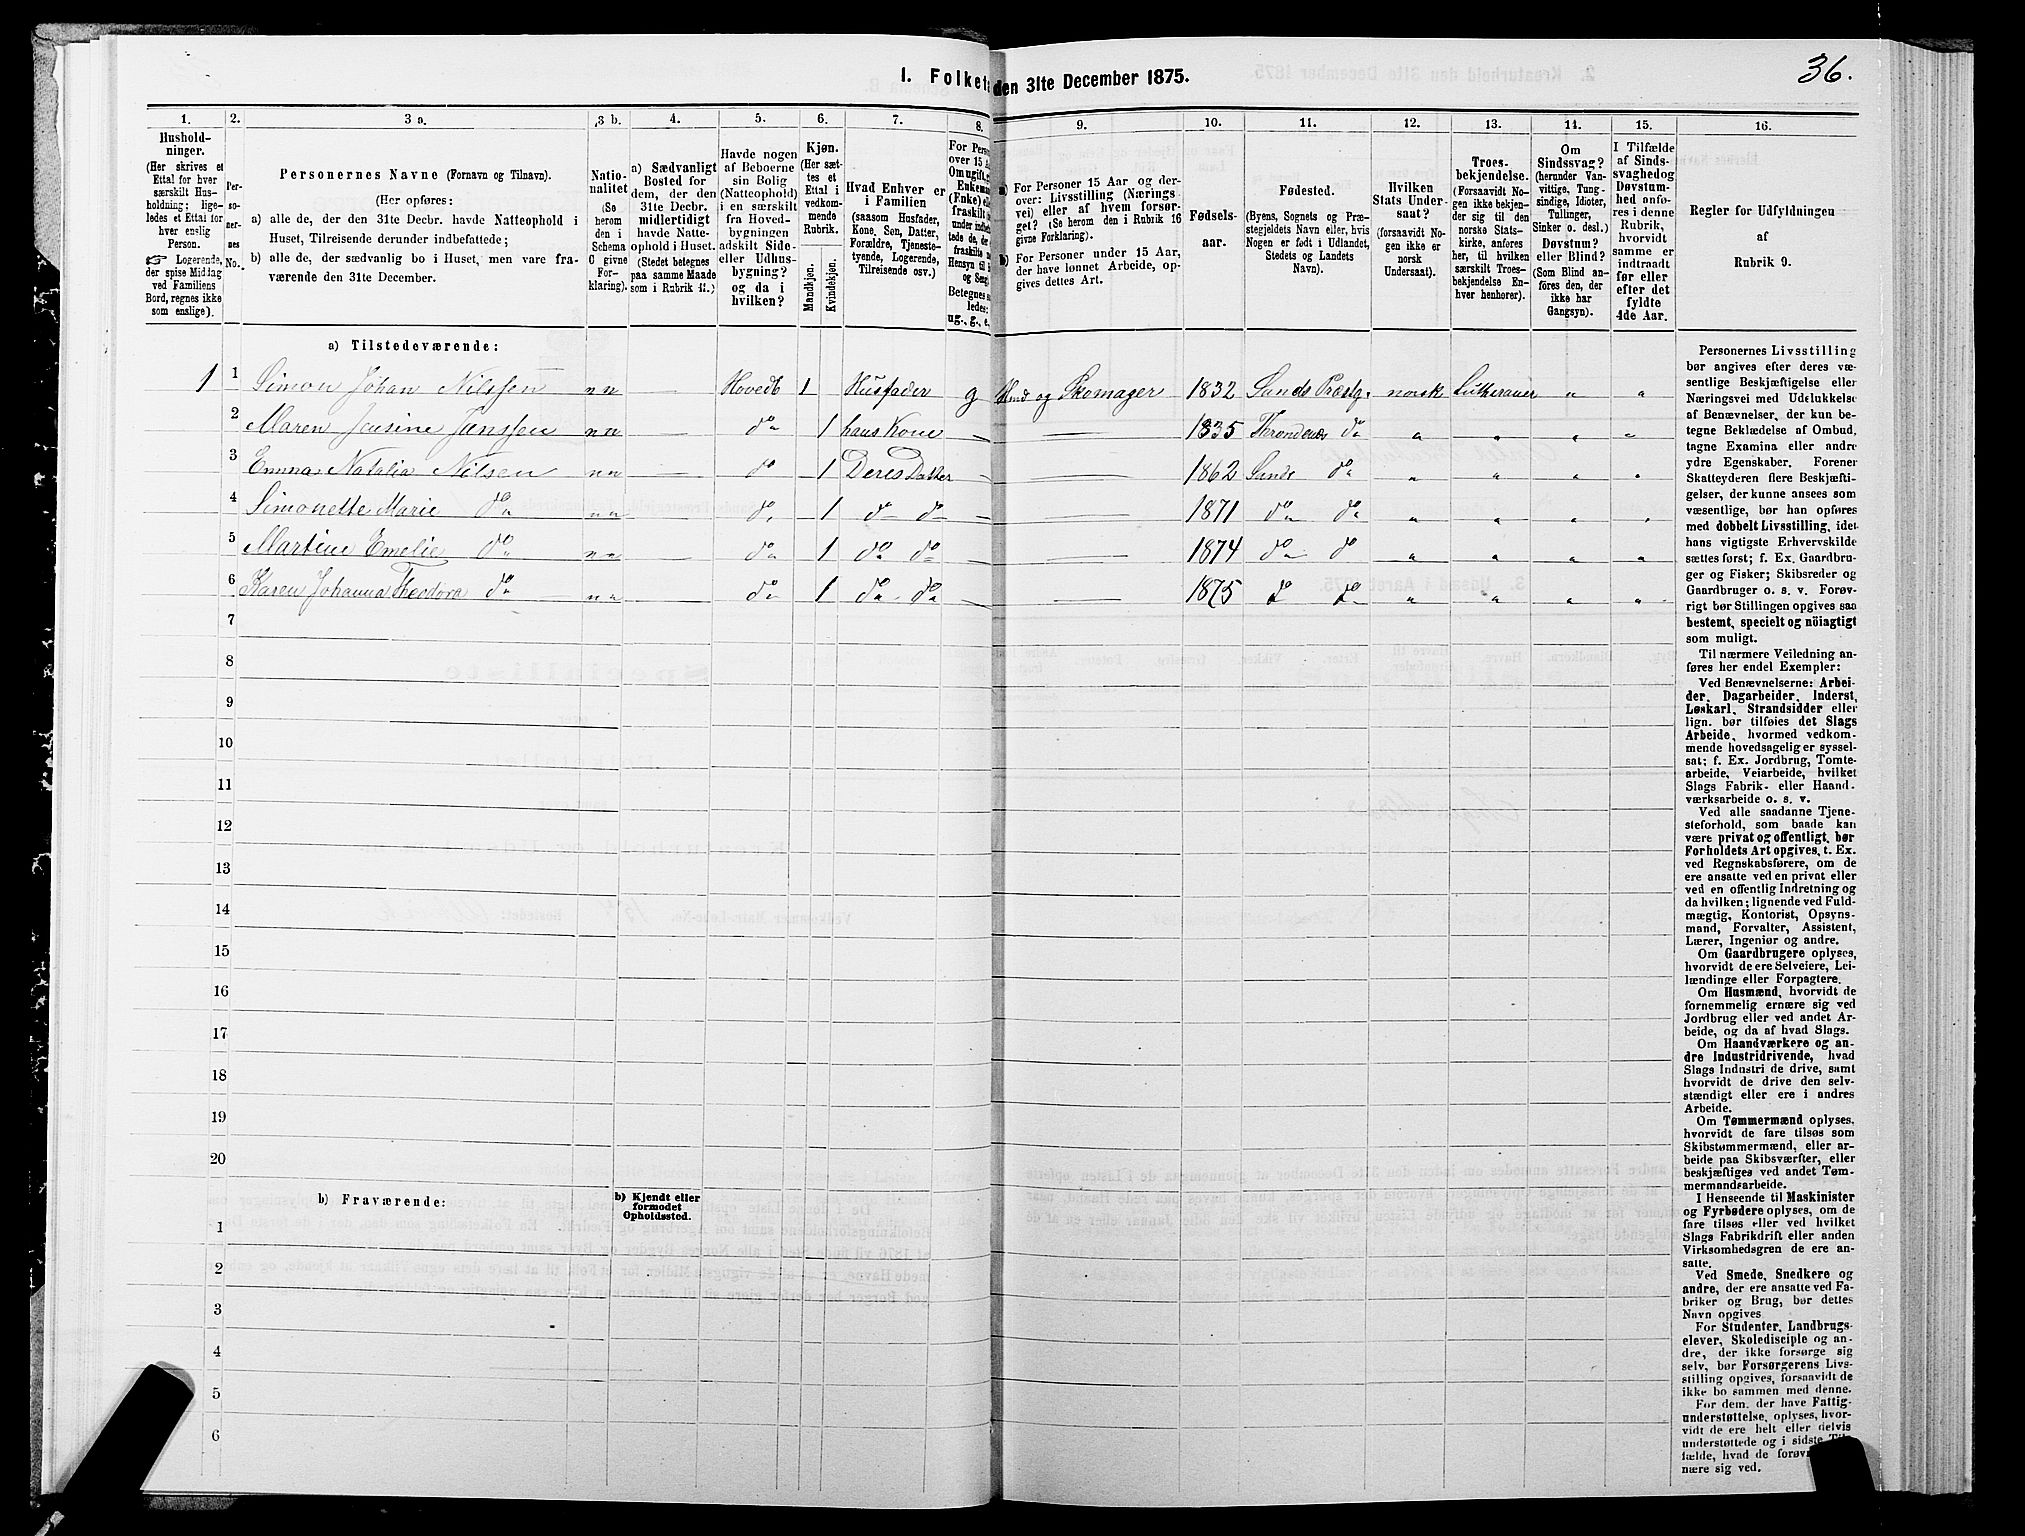 36.
I. Folketa den 31te December 1875.
1. 2. 3 a. 3 b. 4. 5. 6. 7. 8. 9. 10. 11. 12. 13. 14. 15. 16.
Hushold-
ninger.
(Her skrives et
Ettal for hver
særskilt Hus-
holdning; lige-
ledes et Ettal for
hver enslig
Person.
☞ Logerende,
der spise Middag
ved Familiens
Bord, regnes ikke
som enslige).
Per-
so-
ner-
nes
No.
Personernes Navne (Fornavn og Tilnavn).
(Her opføres:
a) alle de, der den 31te Decbr. havde Natteophold i
Huset, Tilreisende derunder indbefattede;
b) alle de, der sædvanlig bo i Huset, men vare fra-
værende den 31te December.
Natio-
nalitet
(Se
herom
den i
Schema
C givne
For-
klaring).
a) Sædvanligt
Bosted for
dem, der den
31te Decbr.
midlertidigt
havde Natte-
ophold i Huset.
(Stedet betegnes
paa samme Maade
som i Rubrik 11.)
Havde nogen
af Beboerne
sin Bolig
(Natteophold)
i en særskilt
fra Hoved-
bygningen
adskilt Side-
eller Udhus-
bygning?
og da i
hvilken?
Kjøn.
(Her sæt-
tes et
Ettal i
vedkom-
mende
Rubrik.
Mandkjøn.
Kvindekjøn.
Hvad Enhver er
i Familien
(saasom Husfader,
Kone, Søn, Datter,
Forældre, Tjeneste-
tyende, Logerende,
Tilreisende osv.)
For Person
over 15 Aa
Om ugift, g
Enkeman
(Enke) elle
fraskilt
Betegnes s
ledes:
ug., g., e.
a) For Personer 15 Aar og der-
over: Livsstilling (Nærings-
vei) eller af hvem forsør-
get? (Se herom den i Rubrik 16
givne Forklaring).
b) For Personer under 15 Aar,
der have lønnet Arbeide, op-
gives dettes Art.
Fødsels-
aar.
Fødested.
(Byens, Sognets og Præ-
stegjeldets Navn eller, hvis
Nogen er født i Udlandet,
Stedets og Landets
Navn).
Hvilken
Stats Under-
saat?
(forsaavidt No-
gen ikke er
norsk
Undersaat).
Troes-
bekjendelse.
(Forsaavidt No-
gen ikke bekjen-
der sig til den
norske Stats-
kirke, anføres
her, til hvilken
særskilt Troes-
bekjendelse En-
hver henhorer).
Om
Sindssvag?
(herunder Van-
vittige, Tung-
sindige, Idioter,
Tullinger,
Sinker o. desl.)
Døvstum?
eller Blind?
(Som Blind an-
føres den, der
ikke har
Gangsyn).
I Tilfælde
af Sinds-
svaghed og
Døvstum-
hed anfø-
res i denne
Rubrik,
hvorvidt
samme er
indtraadt
før eller
efter det
fyldte
4de Aar.
Regler for Udfyldningen
af
Rubrik 9.
a) Tilstedeværende:
1 1 Simon Johan Nilssen nn — Hovedb 1 Husfader g og Skomager 1832 Sands Præstg. norsk Lutheraner " "
2 Maren Jensine Janssen nn — do 1 hans Kone — — 1835 Throndenæs do " " " "
3 Emma Natalia Nilsen nn — do 1 Deres Datter — — 1862 Sands do " " " "
4 Simonette Marie do nn — do 1 do do — — 1871 do do " " " "
5 Martine Emelie do nn — do 1 do do — — 1874 do do " " " "
6 Karen Johanna Theodora do nn do 1 do do — — 1875 do do " " " "
7
8
9
10
11
12
13
14
15
16
17
18
19
20
b) Fraværende:
b) Kjendt eller
formodet
Opholdssted.
1
2
3
4
5
6
Personernes Livsstilling
bør angives efter deres væ-
sentlige Beskjæftigelse eller
Næringsvei med Udelukkelse
af Benævnelser, der kun be-
tegne Beklædelse af Ombud,
tagne Examina eller andre
ydre Egenskaber. Forener
Skatteyderen flere Beskjæfti-
gelser, der kunne ansees som
væsentlige, bør han opføres
med dobbelt Livsstilling, idet
hans vigtigste Erhvervskilde
sættes først; f. Ex. Gaardbru-
ger og Fisker; Skibsreder og
Gaardbruger o. s. v. Forøv-
rigt bør Stillingen opgives saa
bestemt, specielt og nöiagtigt
som muligt.
Til nærmere Veiledning an-
føres her endel Exempler:
Ved Benævnelserne: Arbei-
der, Dagarbeider, Inderst,
Løskarl, Strandsidder eller
lign. bør tilføies det Slags
Arbeide, hvormed vedkom-
mende hovedsagelig er syssel-
sat; f. Ex. Jordbrug, Tomte-
arbeide, Veiarbeide, hvilket
Slags Fabrik- eller Haand-
værksarbeide o. s. v.
Ved alle saadanne Tjene-
steforhold, som baade kan
være privat og offentligt, bør
Forholdets Art opgives, t. Ex.
ved Regnskabsførere, om de
ere ansatte ved en privat eller
ved en offentlig Indretning og
da hvilken; lignende ved Fuld-
mægtig, Kontorist, Opsyns-
mand, Forvalter, Assistent,
Lærer, Ingeniør og andre.
Om Gaardbrugere oplyses,
hvorvidt de ere Selveiere, Lei-
lændinge eller Forpagtere.
Om Husmænd, hvorvidt de
fornemmelig ernære sig ved
Jordbrug eller ved andet Ar-
beide, og da af hvad Slags.
Om Haandværkere og an-
dre Industridrivende, hvad
Slags Industri de drive, samt
hvorvidt de drive den selv-
stændigt eller ere i andres
Arbeide.
Om Tømmermænd oplyses,
hvorvidt de fare tilsøs som
Skibstømmermænd, eller ar-
beide paa Skibsværfter, eller
beskjæftiges ved andet Tøm-
mermandsarbeide.
I Henseende til Maskinister
og Fyrbødere oplyses, om de
fare tilsøs eller ved hvilket
Slags Fabrikdrift eller anden
Virksomhedsgren de ere an-
satte.
Ved Smede, Snedkere og
andre, der ere ansatte ved Fa-
briker og Brug, bør dettes
Navn opgives
For Studenter, Landbrugs-
elever, Skoledisciple og an-
dre, der ikke forsørge sig
selv, bør Forsørgerens Livs-
stilling opgives, forsaavidt de
ikke bo sammen med denne.
For dem, der have Fattig-
understøttelse, oplyses, hvor-
vidt de ere helt eller delvis
understøttede og i sidste Til-
fælde, hvad de forøv
nære sig ved.